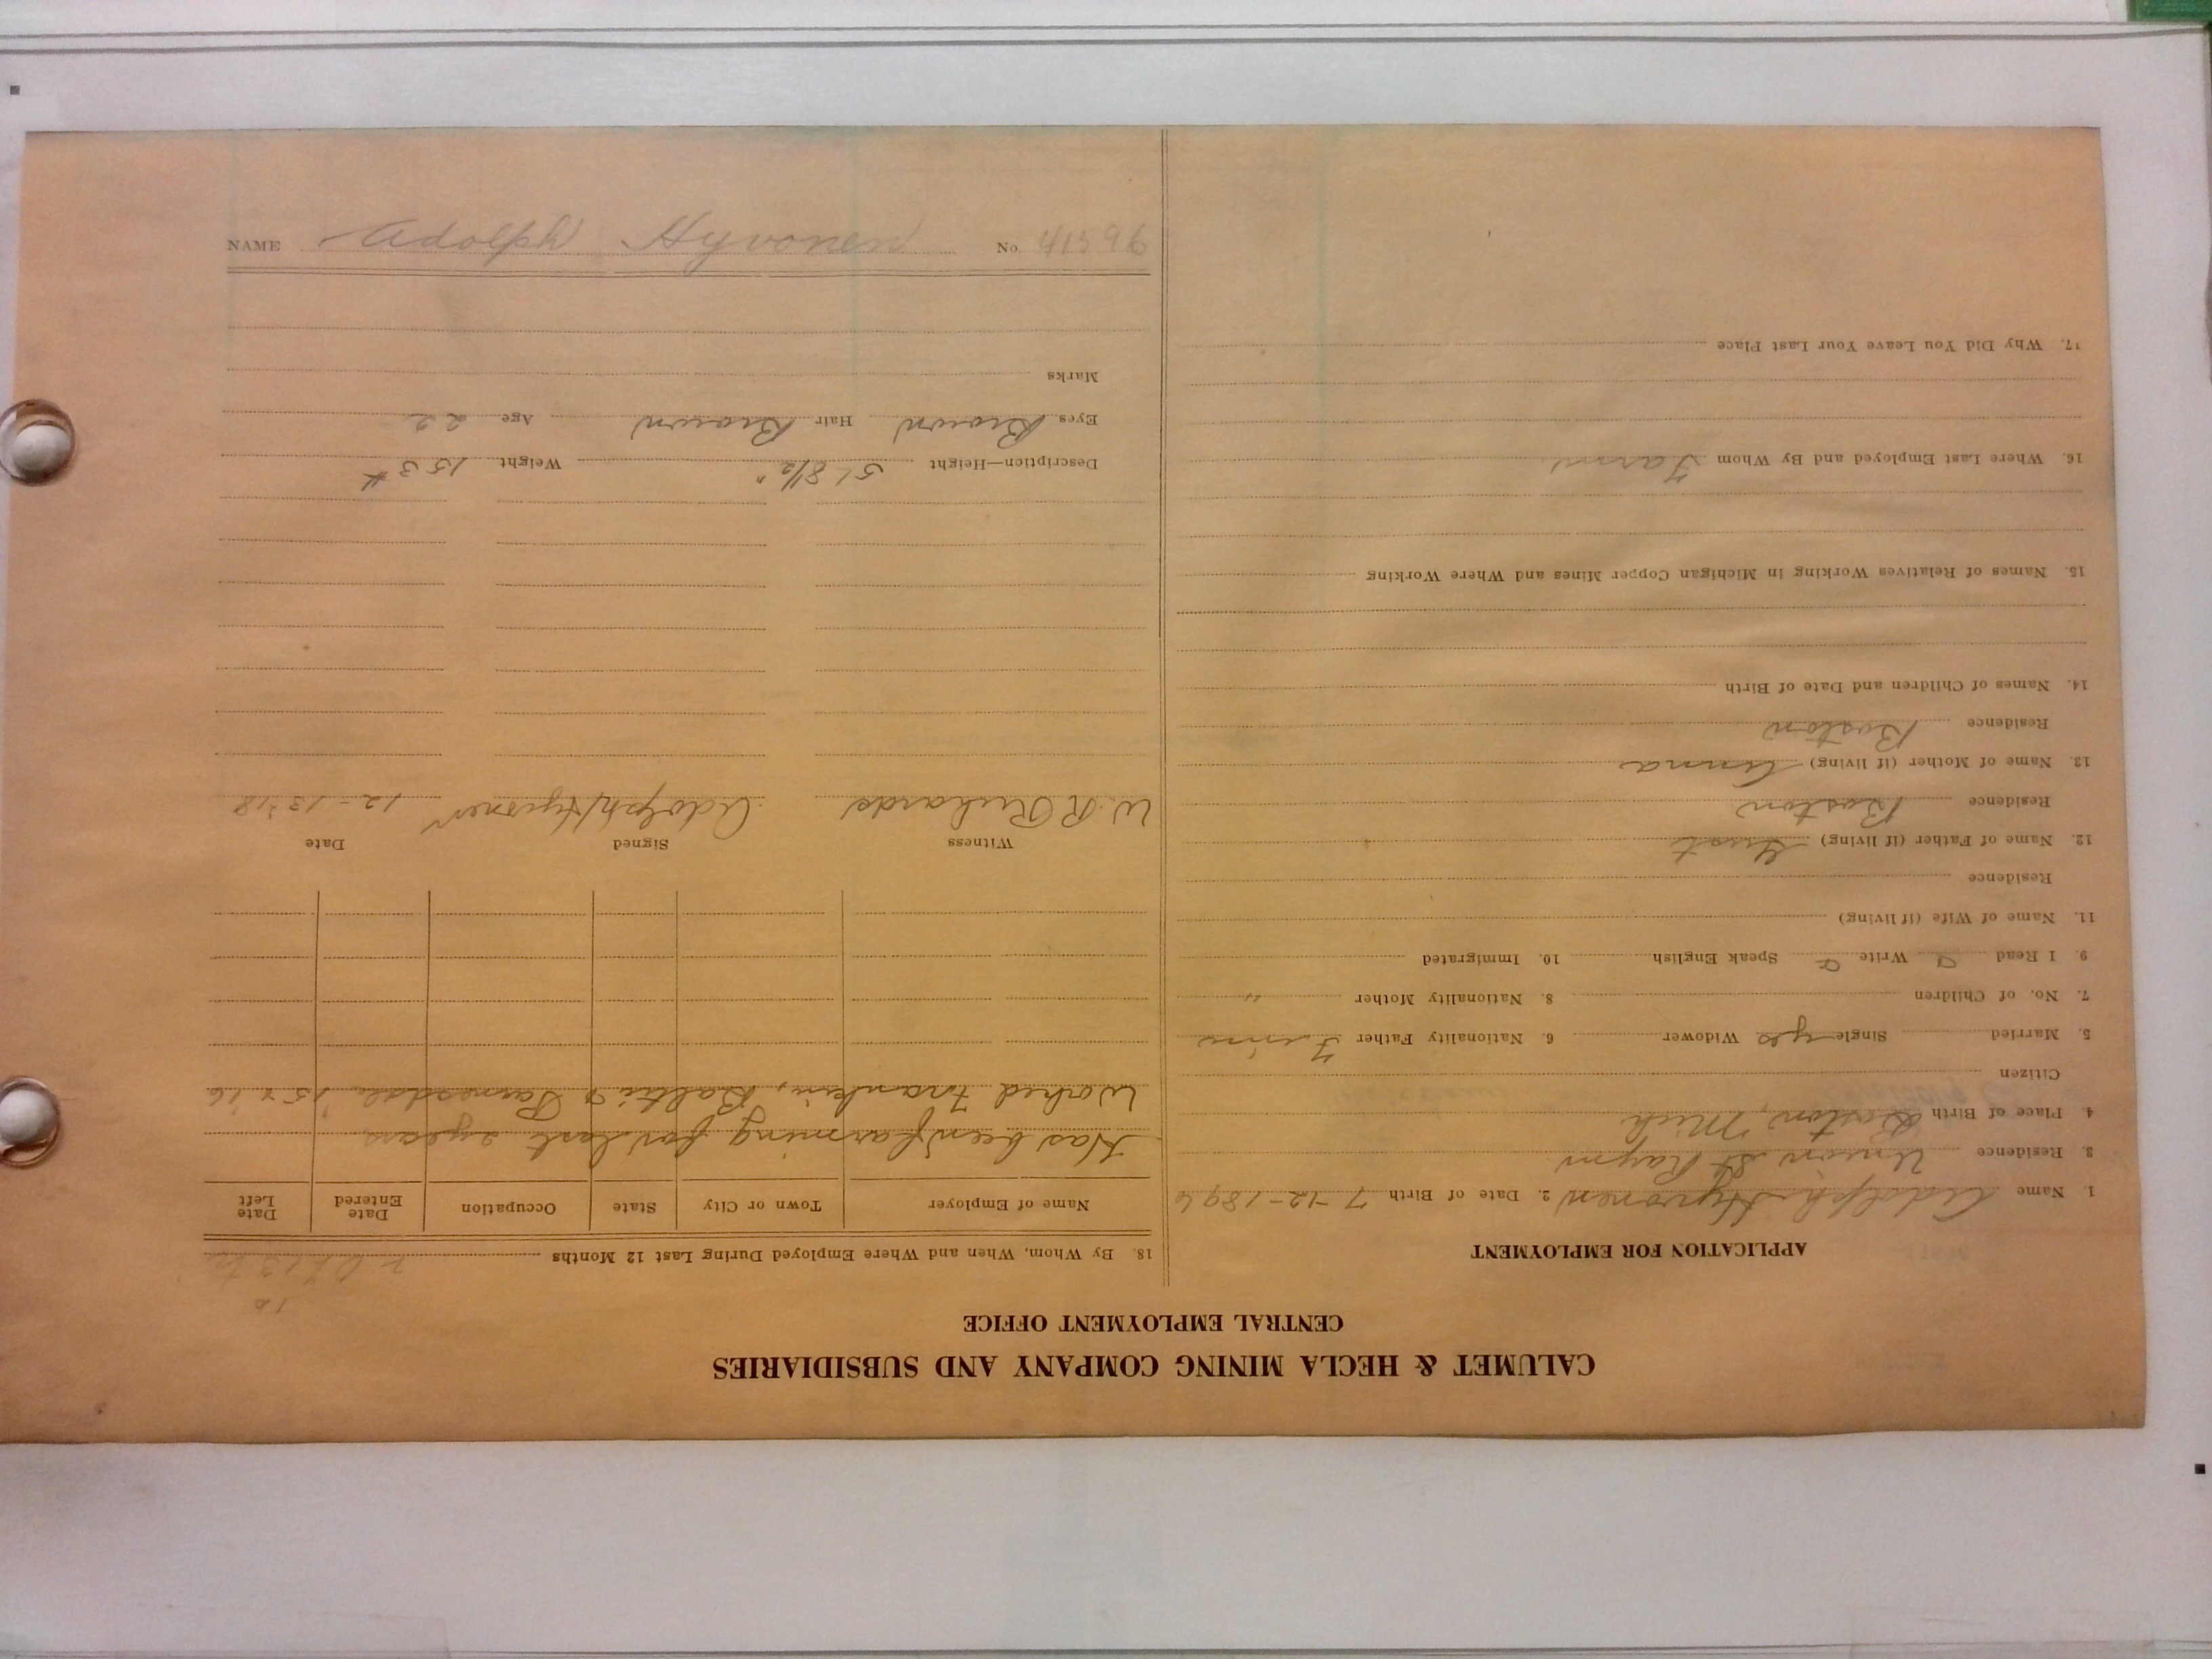 CALUMET & HECLA MINING COMPANY AND SUBSIDIARIES
CENTRAL EMPLOYMENT OFFICE
APPLICATION FOR EMPLOYMENT
1. Name Adolph Hyvonen 2. Date of Birth 7-12-1896
3. Residence Union St Raym
4. Place of Birth Boston, Mich
Citizen
5. Married Single yes Widower 6. Nationality Father Finn
7. No. of Children 8. Nationality Mother "
9. I Read Write Speak English 10. Immigrated
11. Name of Wife (if living)
Residence
12. Name of Father (if living) Gust
Residence Boston
13. Name of Mother (if living) Anna
Residence Boston
14. Names of Children and Date of Birth
15. Names of Relatives Working in Michigan Copper Mines and Where Working
16. Where Last Employed and By Whom Farm
17. Why Did You Leave Your Last Place
18. By Whom, When and Where Employed During Last 12 Months
Name of Employer Town or City State Occupation Date Entered Date Left
Has been farming for last 2 years
Worked Franklin, Baltic & 15 & 16
Witness Signed Date
W. R. Richards Adolph Hyvonen 12-13-18
Description—Height 5' 8 1/2" Weight 153 #
Eyes Brown Hair Brown Age 22
Marks
NAME Adolph Hyvonen No. 41596